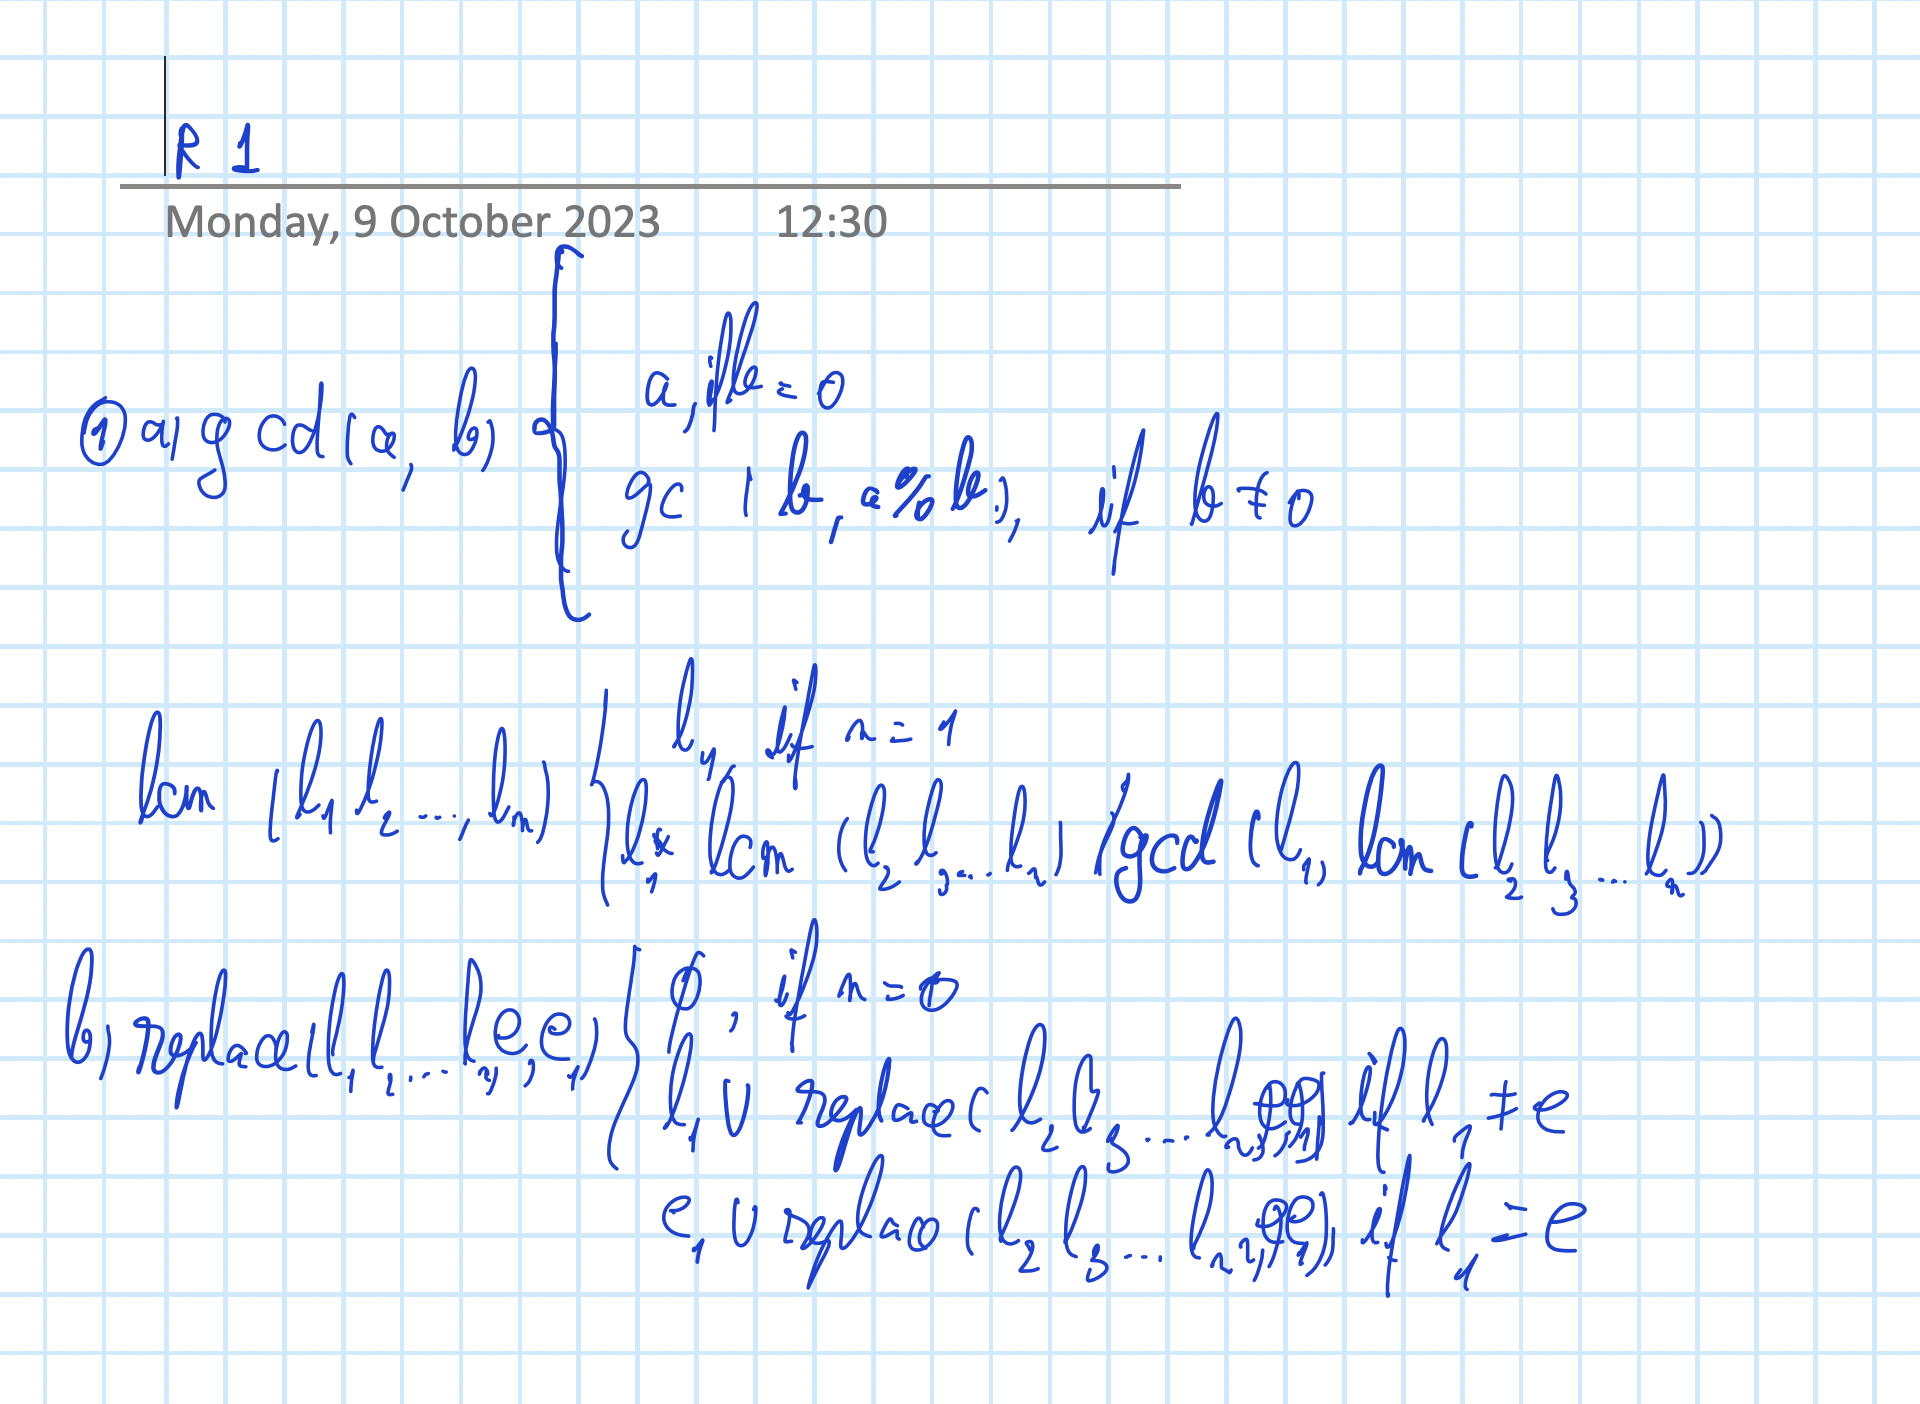 R 1
Monday, 9 October 2023 12:30
a, if b = 0
① a) gcd (a, b)
gc (b, a % b), if b ≠ 0
l₁, if n = 1
lcm (l₁ l₂ ..., lₙ)
l₁ * lcm (l₂ l₃ ... lₙ) / gcd (l₁, lcm (l₂ l₃ ... lₙ))
∅, if n = 0
b) replace (l₁ l₂ ... lₙ, e, e₁)
l₁ ∪ replace (l₂ l₃ ... lₙ, e, e₁), if l₁ ≠ e
e₁ ∪ replace (l₂ l₃ ... lₙ, e, e₁), if l₁ = e